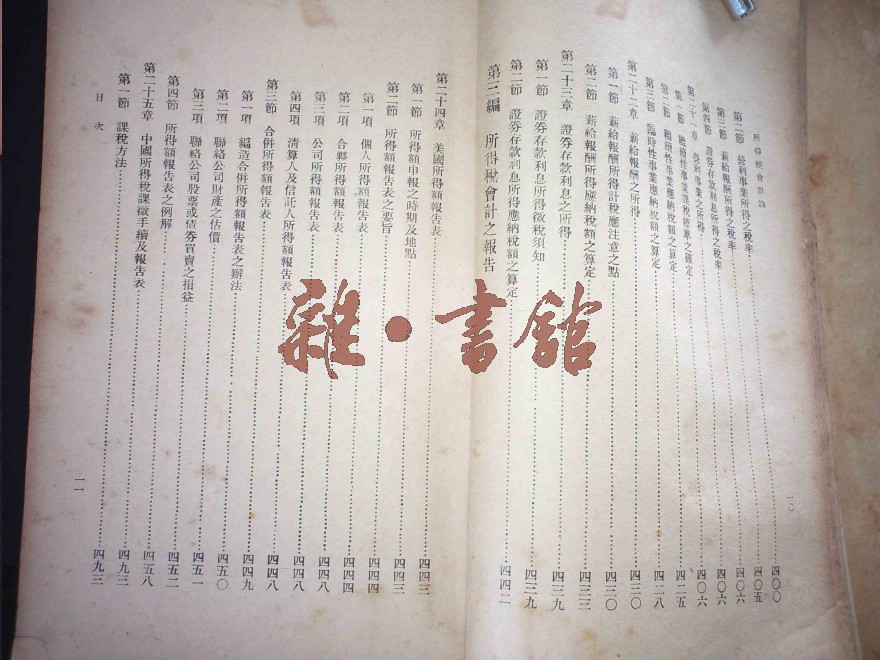 所得稅會計論
一〇
第二節 營利事業所得之稅率 四〇〇
第三節 薪給報酬所得之稅率 四〇五
第四節 證券存款利息所得之稅率 四〇六
第二十一章 營利事業之所得 四〇六
第一節 繼續性事業課稅標準之確定 四〇六
第二節 繼續性事業應納稅額之算定 四一五
第三節 臨時性事業應納稅額之算定 四二八
第二十二章 薪給報酬之所得 四三〇
第一節 薪給報酬所得計稅應注意之點 四三〇
第二節 薪給報酬所得應納稅額之算定 四三三
第二十三章 證券存款利息之所得 四三九
第一節 證券存款利息所得徵稅須知 四三九
第二節 證券存款利息所得應納稅額之算定 四四二
第三編 所得稅會計之報告
第二十四章 美國所得額報告表 四四三
第一節 所得額申報之時期及地點 四四三
第二節 所得額報告表之要旨 四四四
第一項 個人所得額報告表 四四四
第二項 合夥所得額報告表 四四八
第三項 公司所得額報告表 四四八
第四項 清算人及信託人所得額報告表 四四八
第三節 合併所得額報告表 四四九
第一項 編造合併所得額報告表之辦法 四五〇
第二項 聯絡公司財產之估價 四五一
第三項 聯絡公司股票或債券買賣之損益 四五二
第四節 所得額報告表之例解 四五八
第二十五章 中國所得稅課徵手續及報告表 四九三
第一節 課稅方法 四九三
目次
一一
雜·書館